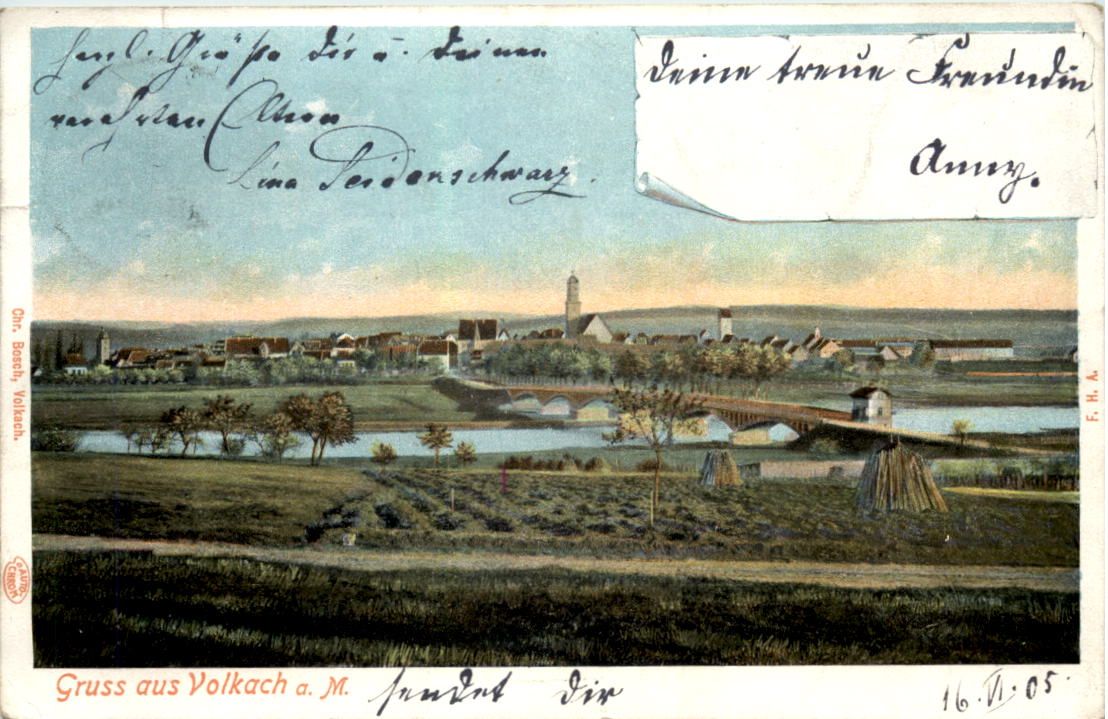 herzl. Grüße dir u. deinen
verehrten Eltern
Lina Seidenschwarz.
Deine treue Freundin
Anny.
Chr. Bosch, Volkach.
F. H. A.
AUTO-
CHROM
Gruss aus Volkach a. M.
sendet dir
16. VI. 05.